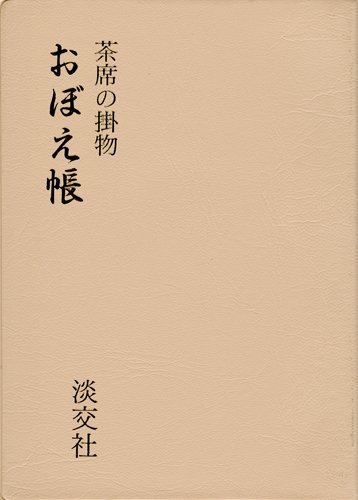 茶席の掛物
おぼえ帳
淡交社